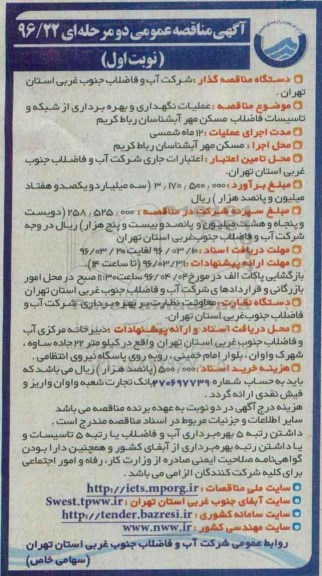 آگهی مناقصه عمومی دو مرحله‌ای ۹۶/۲۲
(نوبت اول)
دستگاه مناقصه گذار : شرکت آب و فاضلاب جنوب غربی استان
تهران .
موضوع مناقصه : عملیات نگهداری و بهره برداری از شبکه و
تاسیسات فاضلاب مسکن مهر آبشناسان رباط کریم
مدت اجرای عملیات : ۱۲ ماه شمسی
محل اجرا : مسکن مهر آبشناسان رباط کریم
محل تامین اعتبار : اعتبارات جاری شرکت آب و فاضلاب جنوب
غربی استان تهران.
مبلغ برآورد : ۳،۱۷۰،۵۰۰،۰۰۰ (سه میلیارد و یکصد و هفتاد
میلیون و پانصد هزار) ریال
مبلغ سپرده شرکت در مناقصه : ۲۵۸،۵۲۵،۰۰۰ (دویست
و پنجاه و هشت میلیون و پانصد و بیست و پنج هزار) ریال در وجه
شرکت آب و فاضلاب جنوب غربی استان تهران
مهلت دریافت اسناد : ۹۶/۰۳/۱۰ لغایت ۹۶/۰۳/۲۰
مهلت ارائه پیشنهادات : ۹۶/۰۳/۳۱ (تا ساعت ۱۴).
بازگشایی پاکات الف در مورخ ۹۶/۰۴/۰۴ ساعت ۱۱:۳۰ صبح در محل امور
بازرگانی و قراردادهای شرکت آب و فاضلاب جنوب غربی استان تهران
دستگاه نظارت : معاونت نظارت بر بهره برداری شرکت آب و
فاضلاب جنوب غربی استان تهران.
محل دریافت اسناد و ارائه پیشنهادات : دبیرخانه مرکزی آب
و فاضلاب جنوب غربی استان تهران واقع در کیلومتر ۲۲ جاده ساوه ،
شهرک واوان ، بلوار امام خمینی ، روبه روی پاسگاه نیروی انتظامی .
هزینه خرید اسناد : ۵۰۰،۰۰۰ (پانصد هزار) ریال می باشد که
باید به حساب شماره ۲۷۰۶۹۷۷۳۹ بانک تجارت شعبه واوان واریز و
فیش نقدی ارائه گردد .
هزینه درج آگهی در دو نوبت به عهده برنده مناقصه می باشد
سایر اطلاعات و جزئیات مربوط در اسناد مناقصه مندرج است .
داشتن رتبه ۵ بهره‌برداری آب و فاضلاب یا رتبه ۵ تاسیسات و
یا داشتن رتبه بهره‌برداری از آبفای کشور و همچنین دارا بودن
گواهی‌نامه صلاحیت ایمنی صادره از وزارت کار ، رفاه و امور اجتماعی
برای کلیه شرکت کنندگان الزامی می باشد .
سایت ملی مناقصات : http://iets.mporg.ir
سایت آبفای جنوب غربی استان تهران : Swest.tpww.ir
سایت سامانه کشوری : http://tender.bazresi.ir
سایت مهندسی کشور : www.nww.ir
روابط عمومی شرکت آب و فاضلاب جنوب غربی استان تهران
(سهامی خاص)